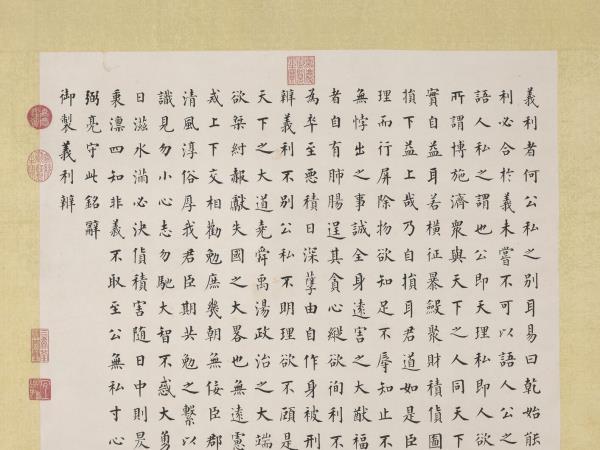 義利者何公私之別耳易曰乾始能
利必合於義未嘗不可以語人公之
語人私之謂也公即天理私即人欲
所謂博施濟衆與天下之人同天下
實自益耳若橫征暴斂聚財積貨圖
損下益上哉乃自損耳君道如是臣
理而行屏除物欲知足不辱知止不
無悖出之事誠全身遠害之大猷福
者自有肺腸逞其貪心縱欲徇利不
為卒至惡積日深孽由自作身被刑
辨義利不別公私不明理欲不顧是
天下之大道堯舜禹湯政治之大端
欲桀紂赧獻失國之大畧也無遠慮
戒上下交相勸勉庶幾朝無佞臣郡
清風淳俗厚我君臣期共勉之繫以
識見勿小心志勿馳大智不惑大勇
日滋水滿必決貨積害隨日中則昃
秉凛四知非義不取至公無私寸心
弼亮守此銘辭
御製義利辨